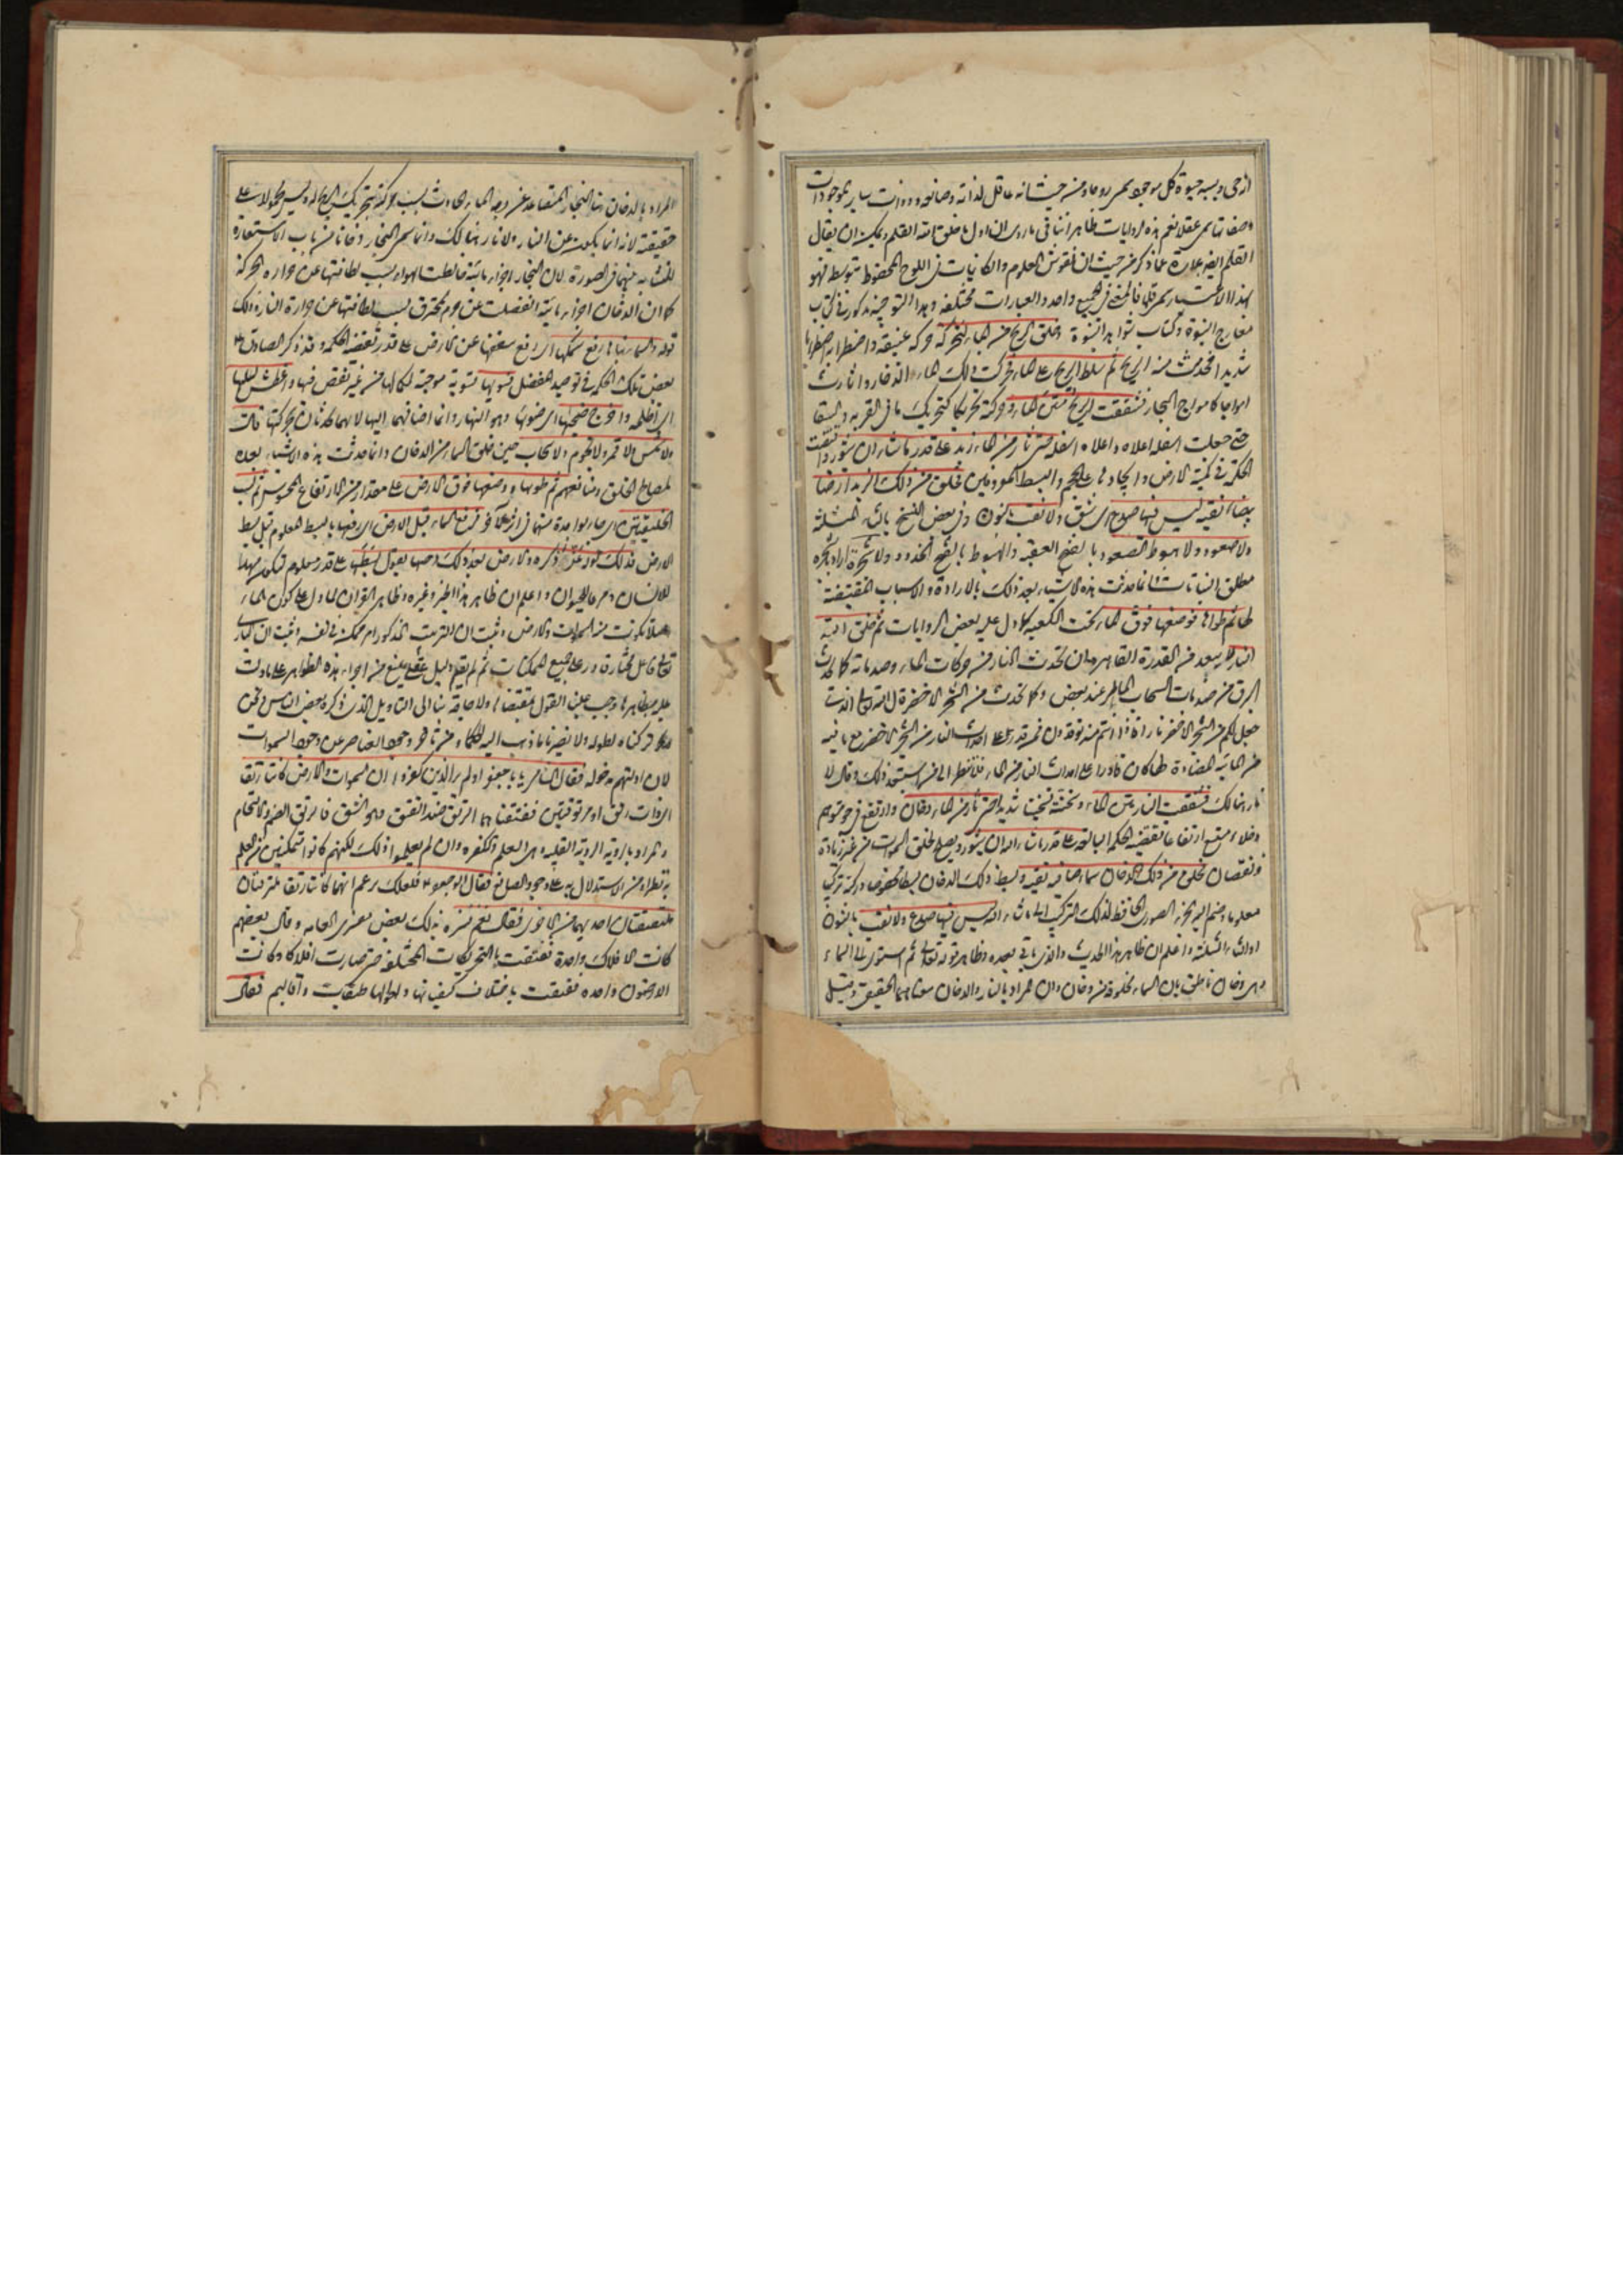 الحي وبسببه حيوة كل موجود يسمى روحا ومن حيث انه عاقل لذاته وصفاته وذوات ساير الموجودات
وصفاتها يسمى عقلا نعم هذه الروايات ظاهرا تنافي ما روي ان اول ما خلق الله القلم ويمكن ان يقال
القلم ايضا عبارة عما ذكر من حيث ان نقوش العلوم والكائنات في اللوح المحفوظ بتوسطه فهو
بهذا الاعتبار يسمى قلما فالمعنى في الجميع واحد والعبارات مختلفة وهذا التوجيه مذكور في كتاب
معارج النبوة وكتاب شواهد النبوة وخلق الريح من الماء لتحركه حركة عنيفة واضطرابه اضطرابا
شديدا فحدث منه الريح ثم سلط الريح على الماء فحركت ذلك الماء الذخار واثارت
امواجا كامواج البحار فشققت الريح متن الماء وحركته تحريكا كتحريك ما في القربة والسقا
حتى جعلت اسفله اعلاه واعلاه اسفله حتى ثار من الماء زبد على قدر ما شاء ان يثور واقتضت
الحكمة في كمية الارض وايجادها على الحجم والبسط المعروفين فخلق من ذلك الزبد ارضا
بيضاء نقية ليس فيها صدع اي شق ولا نقب بالنون وفي بعض النسخ بالثاء المثلثة
ولا صعود ولا هبوط الصعود بالفتح العقبة والهبوط بالفتح الحدور ولا شجرة اراد بالشجرة
مطلق النبات انما حدثت هذه الاشياء بعد ذلك بالارادة والاسباب المقتضية
لها ثم طواها فوضعها فوق الماء تحت الكعبة كما دل عليه بعض الروايات ثم خلق الله
النار لا يبعد من القدرة القاهرة ان تحدث النار من حركات الماء وصدماته كما يحدث
البرق من صدمات السحاب الماطر عند بعض وكما تحدث من الشجر الاخضر قال الله تعالى الذي
جعل لكم من الشجر الاخضر نارا فاذا انتم منه توقدون فمن قدر على احداث النار من الشجر الاخضر مع ما فيه
من المائية المضادة لها كان قادرا على احداث النار من الماء فلا تنظر الى من استبعد ذلك وقال لا
نار هنالك فشققت النار متن الماء وسخنته تسخينا شديدا حتى ثار من الماء دخان وارتفع في جو متوهم
وخلاء متسع ارتفاعا تقتضيه الحكمة البالغة على قدر ما شاء الله ان يثور ويصلح لخلق السموات من غير زيادة
ونقصان فخلق من ذلك الدخان سماء صافية نقية وبسط ذلك الدخان بسطا مخصوصا وركبه تركيبا
معلوما وضم اليه الجزء الصوري الحافظ لذلك التركيب الى ما شاء الله ليس فيها صدع ولا نقب بالنون
او الثاء المثلثة واعلم ان ظاهر هذا الحديث والذي ياتي بعده وظاهر قوله تعالى ثم استوى الى السماء
وهي دخان ناطق بان السماء مخلوقة من دخان وان المراد بالنار والدخان معناهما الحقيقي وقيل
المراد بالدخان هنا البخار المتصاعد عن وجه الماء الحادث بسبب حركته بتحريك الريح له وليس محمولا على
حقيقته لانه انما يكون عن النار ولا نار هنالك وانما سمي البخار دخانا من باب الاستعارة
للتشابه بينهما في الصورة لان البخار اجزاء مائية خالطت الهواء بسبب لطافتها عن حرارة الحركة
كما ان الدخان اجزاء مائية انفصلت عن جرم محترق بسبب لطافتها عن حرارة النار وذلك
قوله والسماء بناها رفع سمكها اي رفع سقفها عن الارض على قدر تقتضيه الحكمة وقد ذكر الصادق ع
بعض تلك الحكمة في توحيد المفضل فسويها تسوية موجبة لكمالها من غير نقص فيها واغطش ليلها
اي اظلمه واخرج ضحيها اي ضوءها وهو النهار وانما اضافهما اليها لانهما يحدثان بحركتها قال
ولا شمس ولا قمر ولا نجوم ولا سحاب حين خلق السماء من الدخان وانما حدثت هذه الاشياء بعده
لمصالح الخلق ومنافعهم ثم طويها ووضعها فوق الارض على مقدار من الارتفاع المحسوس ثم نسب
الخليقتين اي جاء بواحدة منهما في اثر الاخرى فرفع السماء قبل الارض اي رفعها بالبسط المعلوم قبل بسط
الارض فذلك قوله عز ذكره والارض بعد ذلك دحيها يقول بسطها على قدر معلوم لتكون مهدا
للانسان ومرعا للحيوان واعلم ان ظاهر هذا الخبر وغيره وظاهر القران لما دل على كون الماء
اصلا تكونت منه السموات والارض وثبت ان الترتيب المذكور امر ممكن في نفسه وثبت ان الباري
تعالى فاعل مختار قادر على جميع الممكنات ثم لم يقم دليل عقلي يمنع من اجراء هذه الظواهر على ما دلت
عليه بظاهرها وجب علينا القول بمقتضاها ولا حاجة بنا الى التاويل الذي ذكره بعض الناس ونحن
تركناه لطوله ولا يضرنا ما ذهب اليه الحكماء من تاخر وجود العناصر عن وجود السموات
لان ادلتهم مدخولة فقال الشامي يا با جعفر اولم ير الذين كفروا ان السموات والارض كانتا رتقا
اي ذات رتق او مرتوقتين ففتقناهما الرتق ضد الفتق وهو الشق فالرتق الضم والالتحام
والمراد بالرؤية الرؤية القلبية وهي العلم والكفرة وان لم يعلموا ذلك لكنهم كانوا متمكنين من العلم
به نظرا ومن الاستدلال به على وجود الصانع فقال ابو جعفر ع فلعلك تزعم انهما كانتا رتقا ملتزقتان
ملتصقتان احديهما من الاخرى فقال نعم فسره بذلك بعض مفسري العامة وقال بعضهم
كانت الافلاك واحدة ففتقت بالتحريكات المختلفة حتى صارت افلاكا وكانت
الارضون واحدة ففتقت باختلاف كيفياتها واحوالها طبقات واقاليم فقال